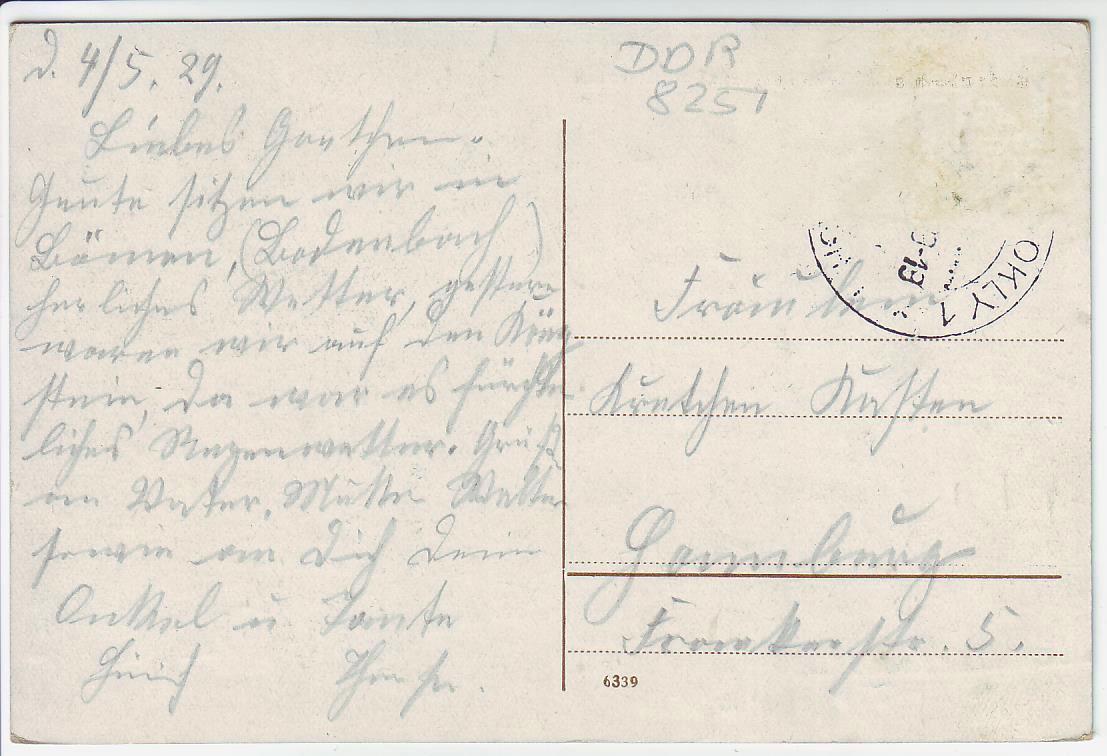 d. 4/5. 29.
Liebes Gretchen.
Heute sitzen wir in
Bömen, (Bodenbach)
herliches Wetter, gestern
waren wir auf den König
stein, da war es fürchter
liches Regenwetter. Gruß
an Vater, Mutter Walter
sowie an Dich Deine
Onkel u Tante
DDR
8251
OKLY 1
-13
Fräulein
Gretchen Kasten
Hamburg
Frankenstr. 5.
6339